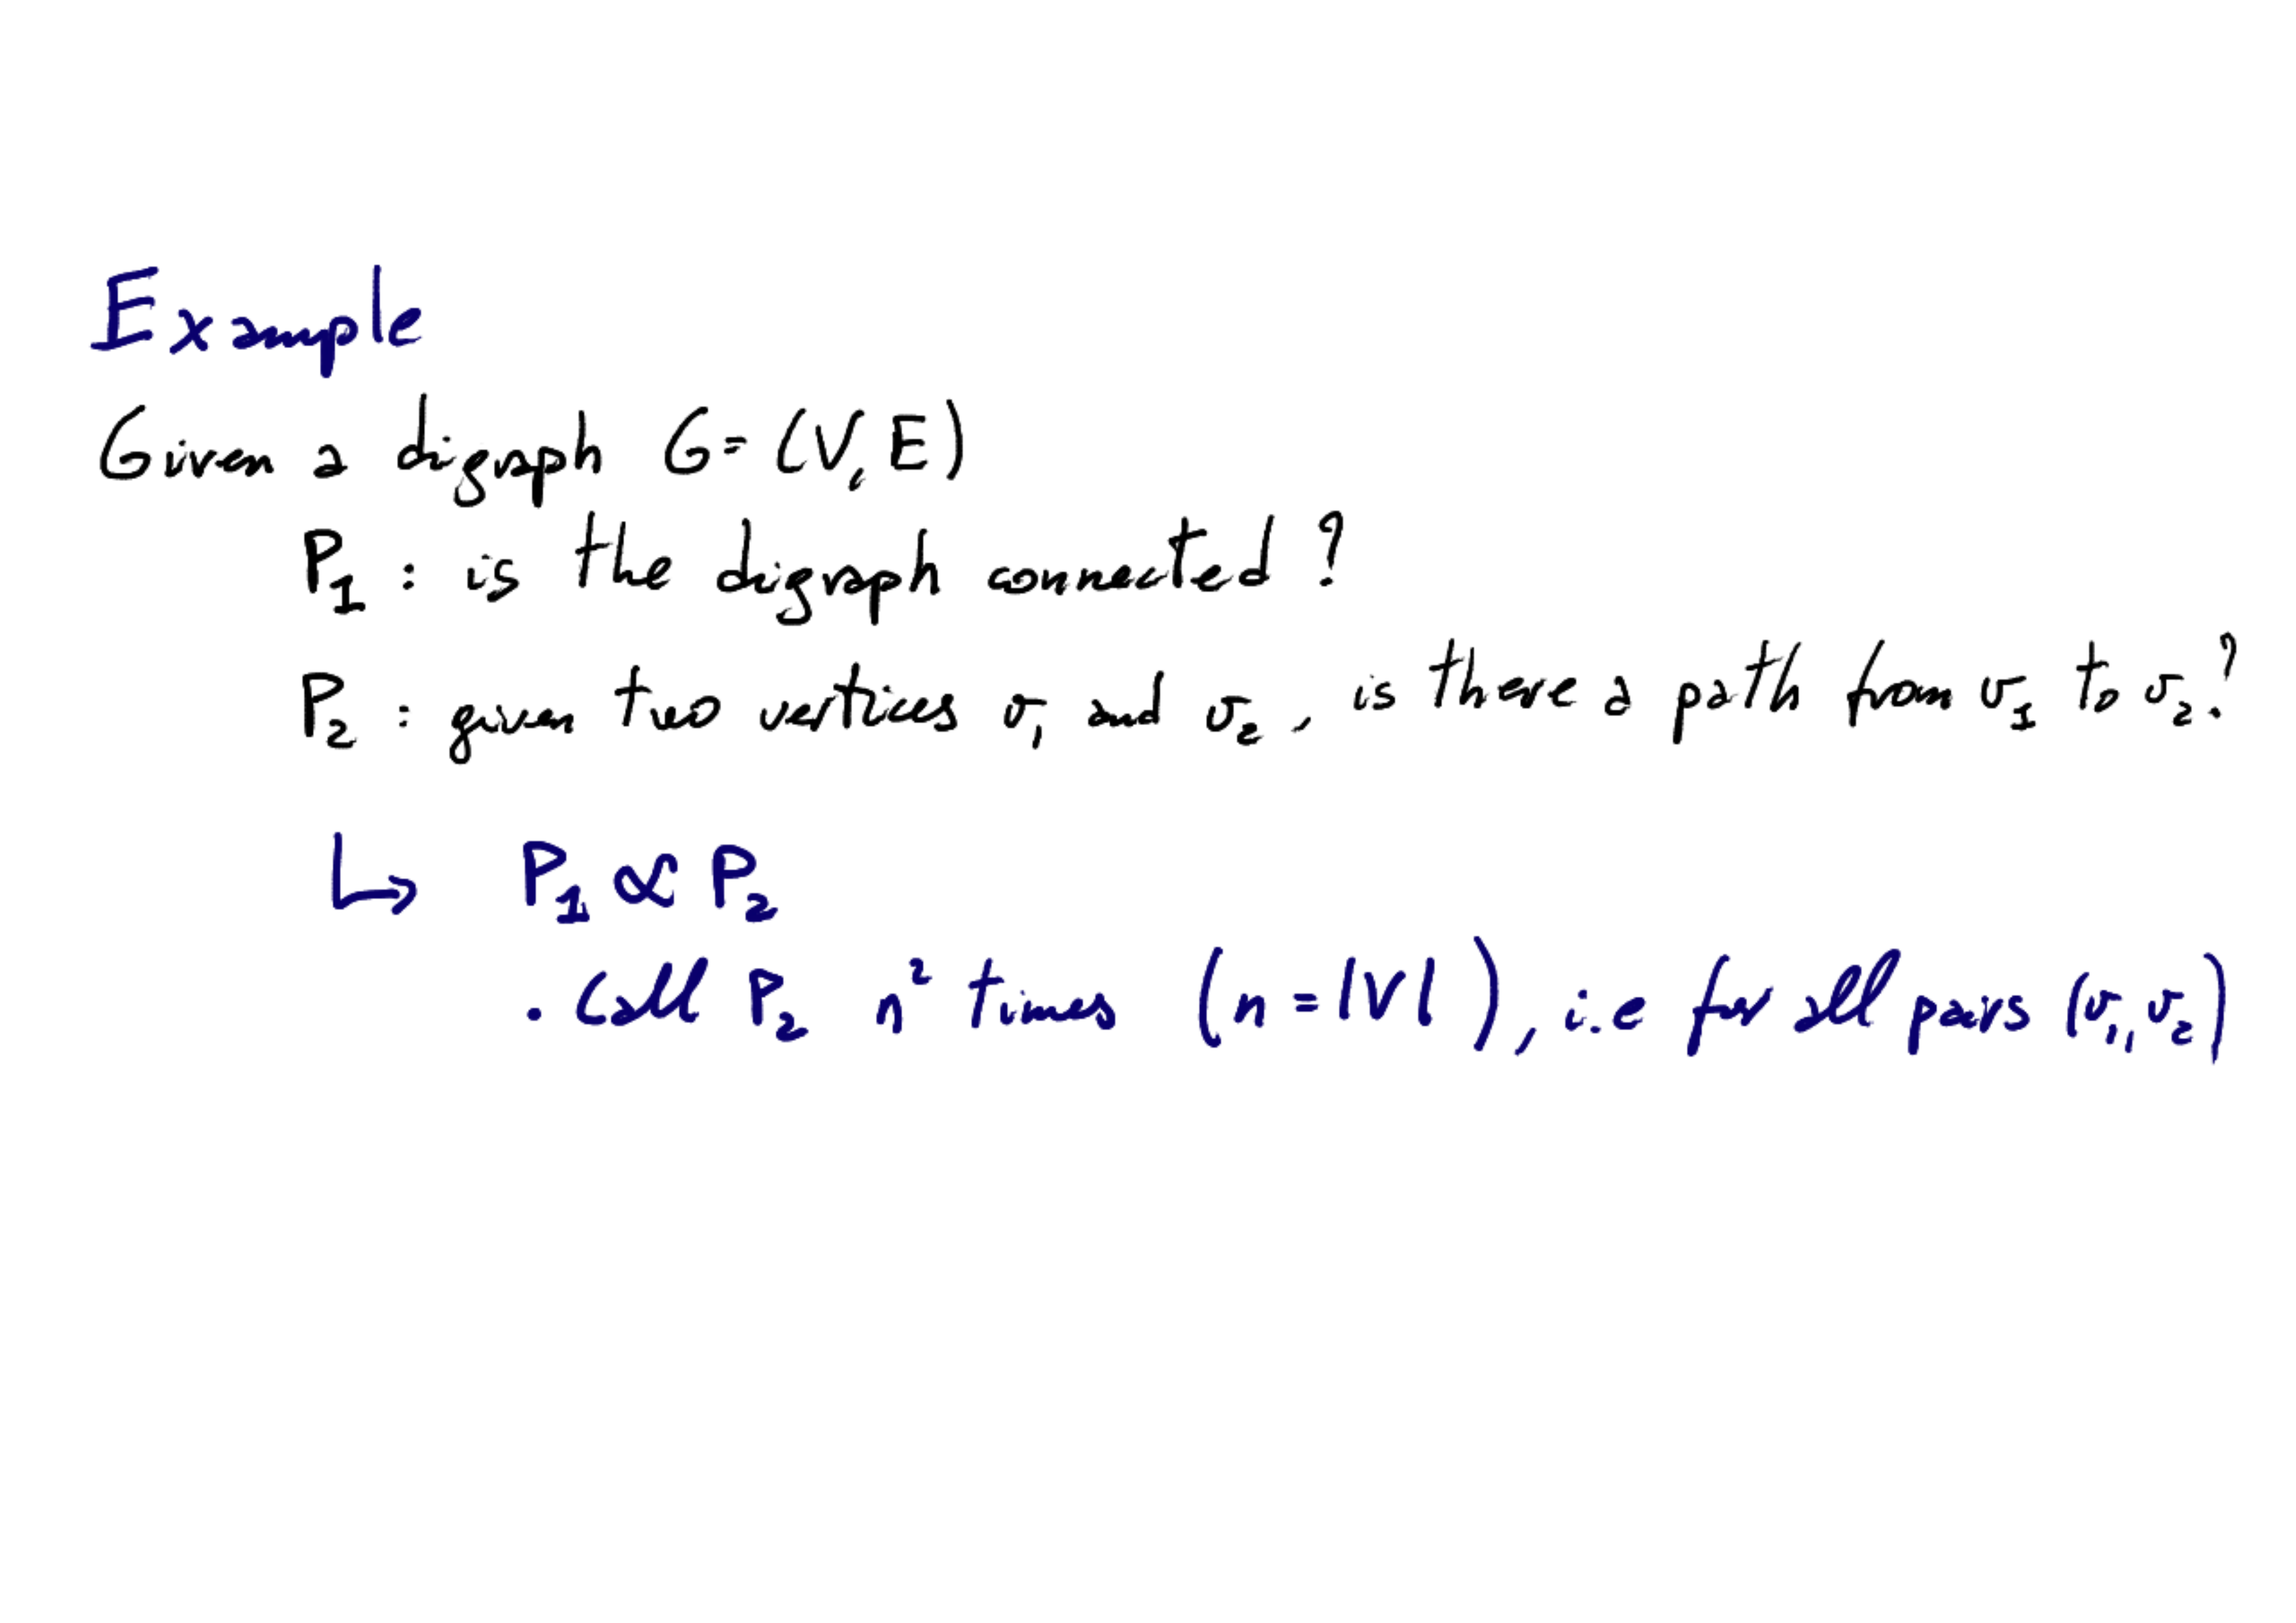 Example
Given a digraph G = (V, E)
P₁ : is the digraph connected ?
P₂ : given two vertices v₁ and v₂, is there a path from v₁ to v₂?
↳ P₁ ∝ P₂
. Call P₂ n² times (n = |V|), i.e for all pairs (v₁, v₂)